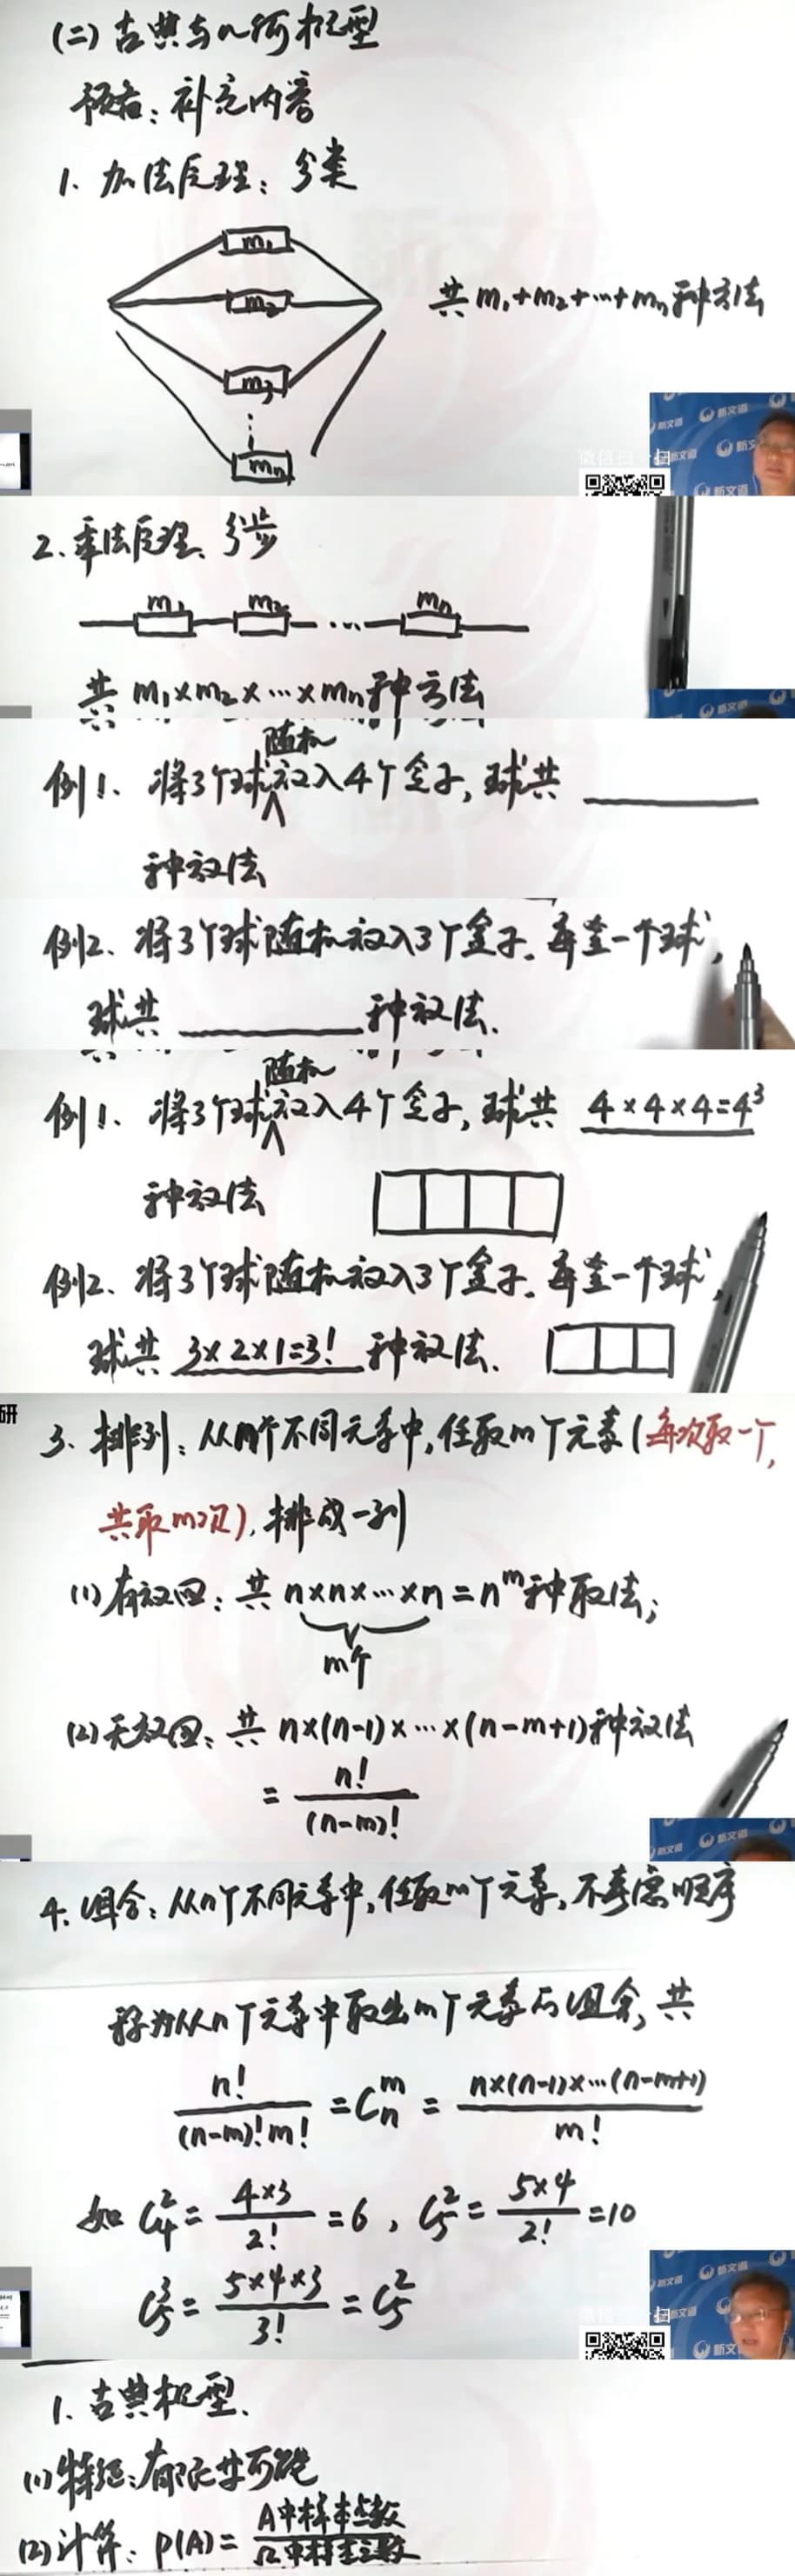 (二) 古典与几何概型
预备：补充内容
1. 加法原理：分类
m₁
m₂
m₃
⋮
mₙ
共 m₁+m₂+…+mₙ 种方法
微信扫一扫
新文道
2. 乘法原理：分步
m₁ m₂ … mₙ
共 m₁×m₂×…×mₙ 种方法
例1. 将3个球随机放入4个盒子，球共 ______
种放法
例2. 将3个球随机放入3个盒子。每盒一个球，
球共 ______ 种放法.
例1. 将3个球随机放入4个盒子，球共 4×4×4=4³
种放法
例2. 将3个球随机放入3个盒子。每盒一个球，
球共 3×2×1=3! 种放法.
研
3. 排列：从n个不同元素中，任取m个元素（每次取一个，
共取m次），排成一列
(1) 有放回：共 n×n×…×n = nᵐ 种取法；
m个
(2) 无放回：共 n×(n-1)×…×(n-m+1) 种放法
= n!/(n-m)!
新文道
4. 组合：从n个不同元素中，任取m个元素，不考虑顺序
称为从n个元素中取出m个元素的组合，共
n!/((n-m)!m!) = Cₙᵐ = n×(n-1)×…(n-m+1)/m!
如 C₄² = 4×3/2! = 6 , C₅² = 5×4/2! = 10
C₅³ = 5×4×3/3! = C₅²
新文道
1. 古典概型.
(1) 特征：有限等可能
(2) 计算：P(A) = A中样本点数/Ω中样本点数